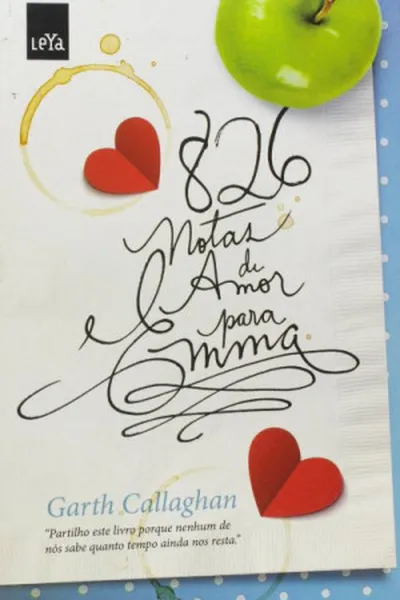 LeYa
826
Notas
de
Amor
para
Emma
Garth Callaghan
“Partilho este livro porque nenhum de
nós sabe quanto tempo ainda nos resta.”